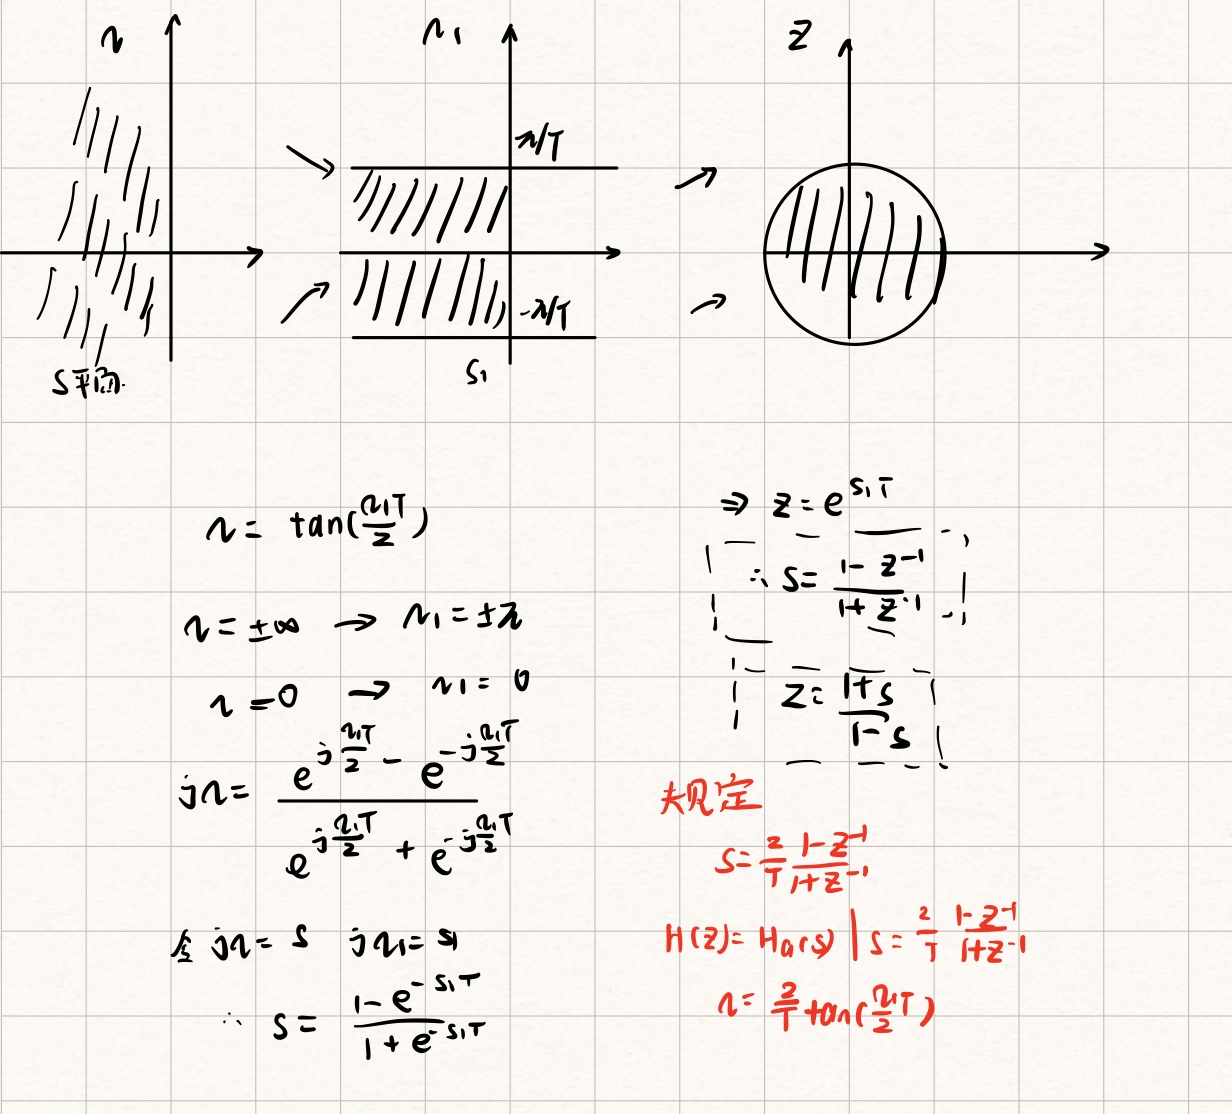 Ω
Ω₁
Z
π/T
-π/T
S平面
S₁
Ω = tan(Ω₁T/2)
Ω = ±∞ → Ω₁ = ±π
Ω = 0 → Ω₁ = 0
jΩ = (e^{jΩ₁T/2} - e^{-jΩ₁T/2}) / (e^{jΩ₁T/2} + e^{-jΩ₁T/2})
令 jΩ = S jΩ₁ = S₁
∴ S = (1 - e^{-S₁T}) / (1 + e^{-S₁T})
⇒ Z = e^{S₁T}
∴ S = (1 - Z⁻¹) / (1 + Z⁻¹)
Z = (1 + S) / (1 - S)
规定
S = 2/T (1 - Z⁻¹)/(1 + Z⁻¹)
H(Z) = Ha(s) | S = 2/T (1 - Z⁻¹)/(1 + Z⁻¹)
Ω = 2/T tan(Ω₁T/2)